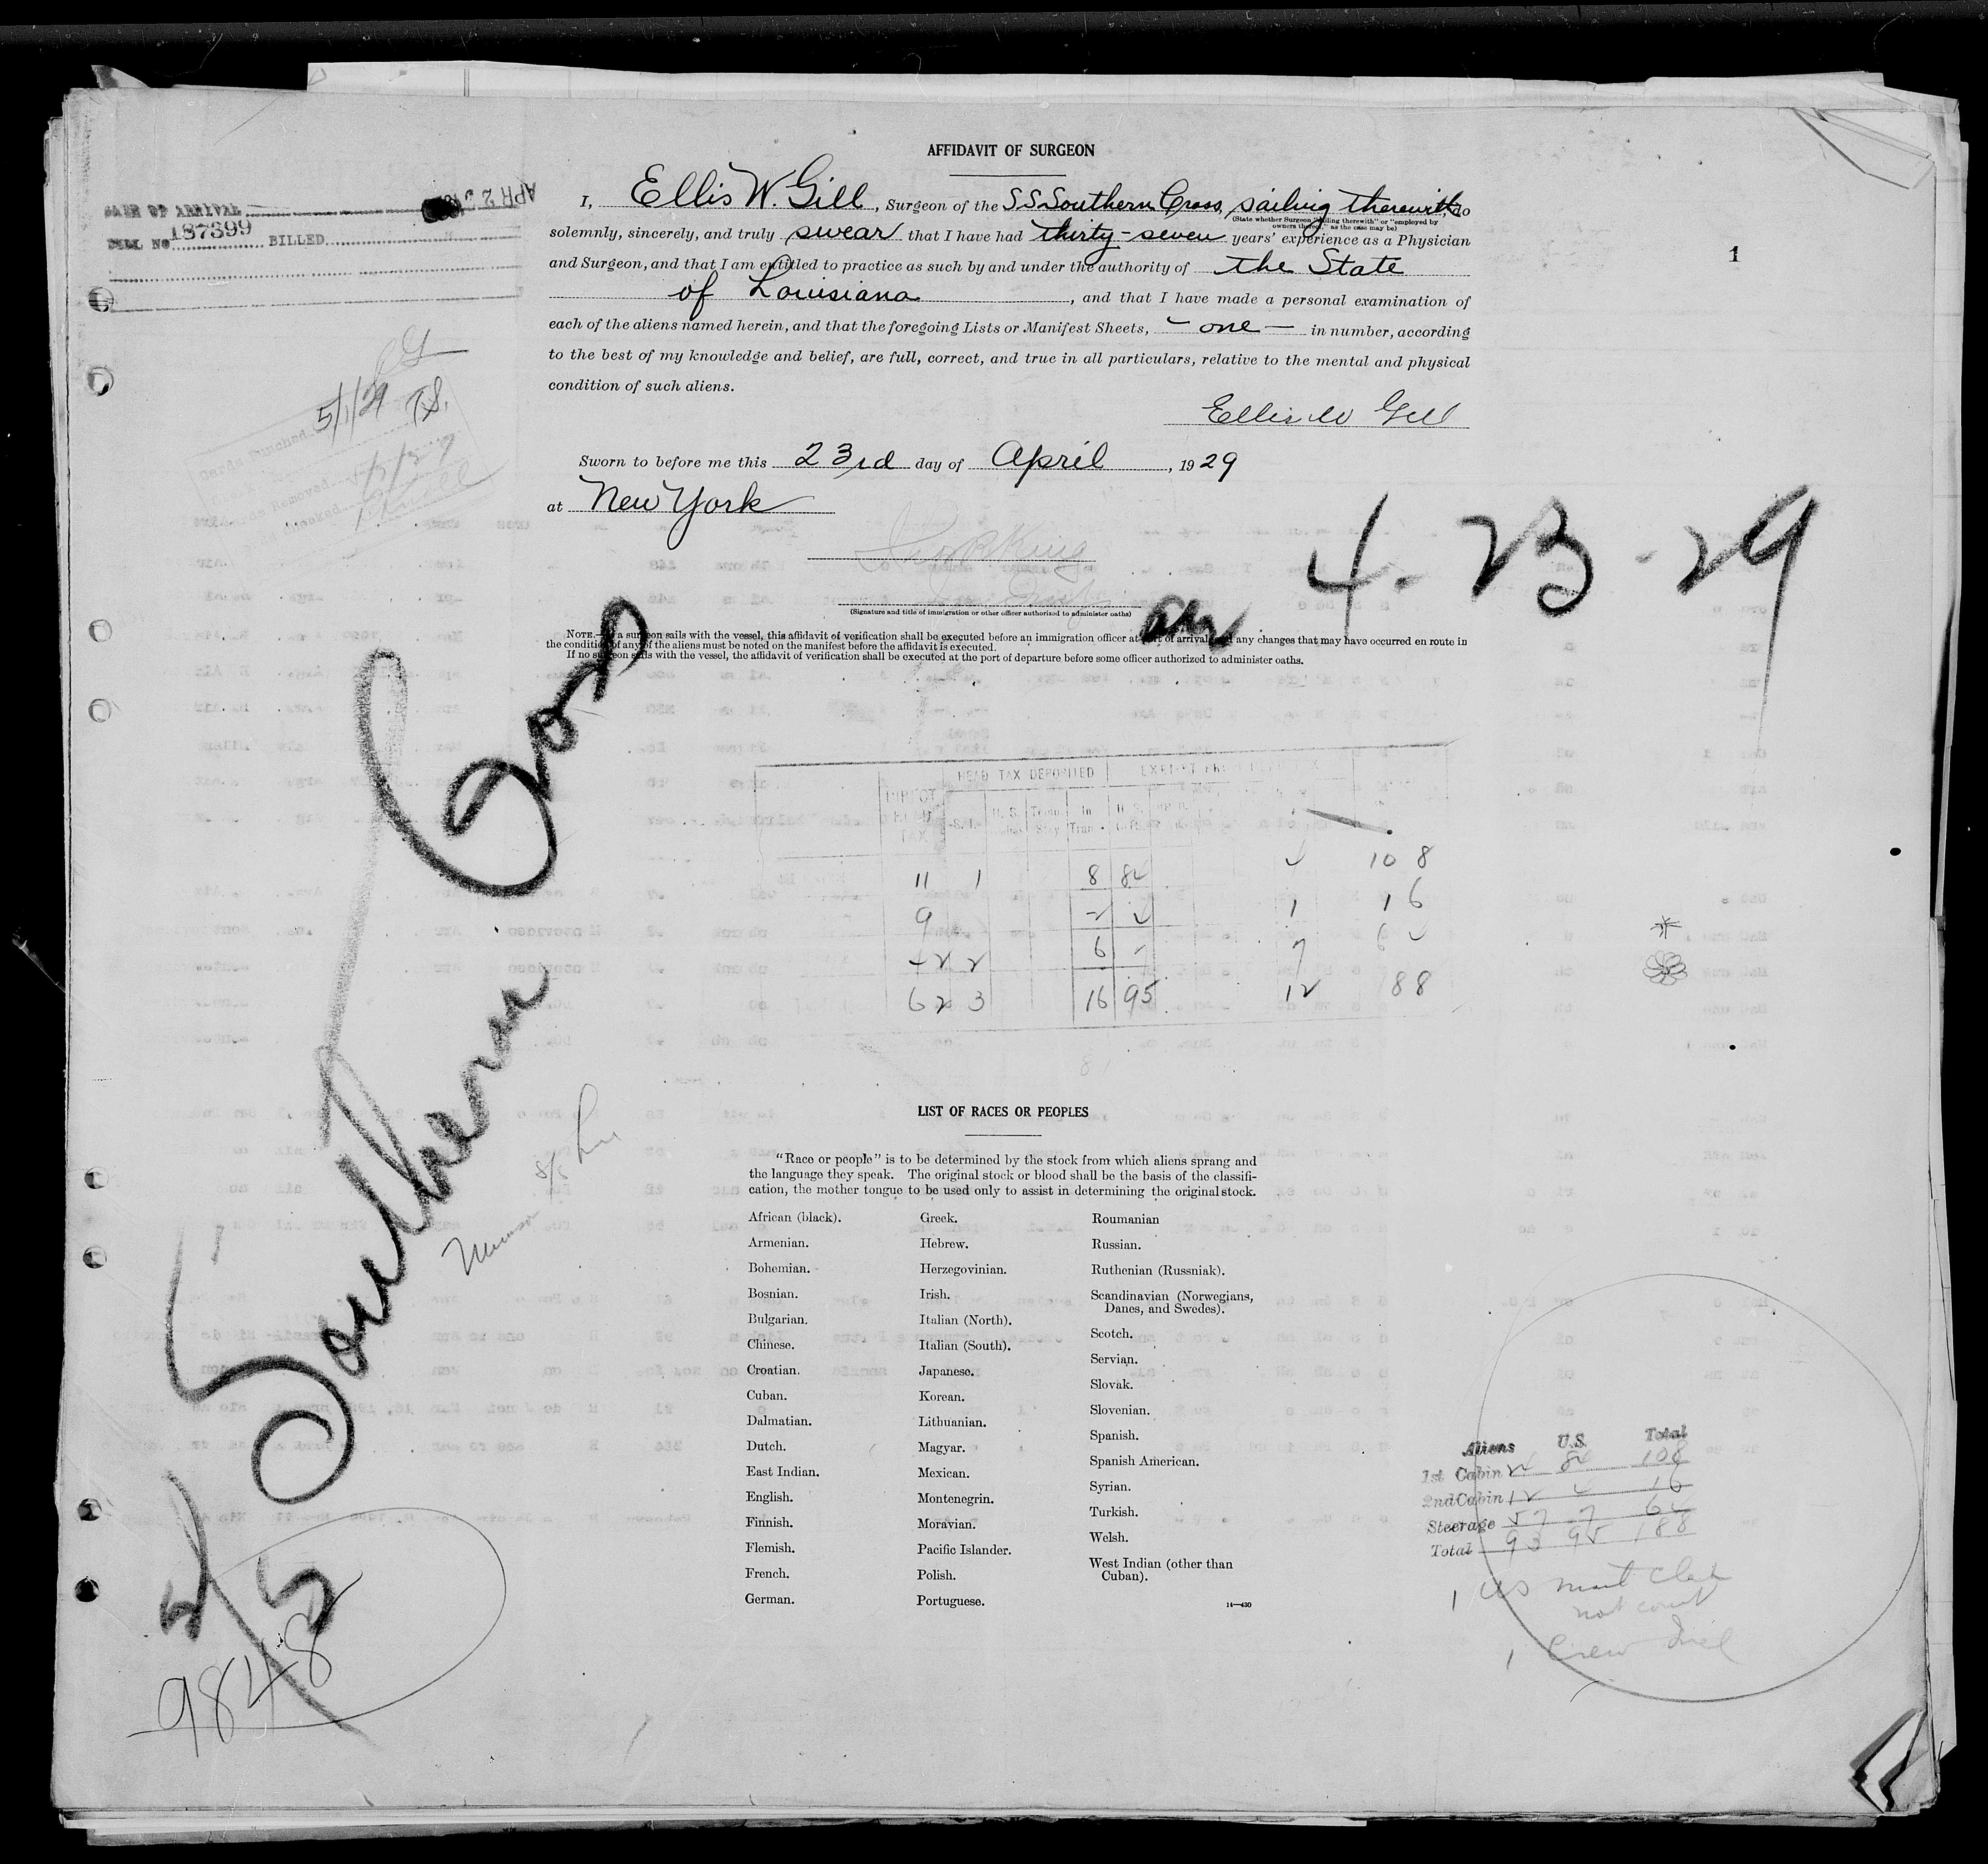 AFFIDAVIT OF SURGEON
I, Ellis W. Gill, Surgeon of the S S Southern Cross, sailing therewith, do
(State whether Surgeon "sailing therewith" or "employed by
owners thereof," as the case may be)
solemnly, sincerely, and truly swear that I have had thirty-seven years' experience as a Physician
and Surgeon, and that I am entitled to practice as such by and under the authority of the State
of Louisiana, and that I have made a personal examination of
each of the aliens named herein, and that the foregoing Lists or Manifest Sheets, - one - in number, according
to the best of my knowledge and belief, are full, correct, and true in all particulars, relative to the mental and physical
condition of such aliens.
Ellis W Gill
Sworn to before me this 23rd day of April, 1929
at New York
(Signature and title of immigration or other officer authorized to administer oaths)
NOTE.—If a surgeon sails with the vessel, this affidavit of verification shall be executed before an immigration officer at port of arrival, and any changes that may have occurred en route in
the condition of any of the aliens must be noted on the manifest before the affidavit is executed.
If no surgeon sails with the vessel, the affidavit of verification shall be executed at the port of departure before some officer authorized to administer oaths.
DATE OF ARRIVAL APR 23
BILL No 187399 BILLED
5/1/29
Cards Punched
1
4-23-29
Southern Cross
Munson
HEAD TAX DEPOSITED EXEMPT FROM HEAD TAX
DIRECT HEAD TAX
11 1 8 84 4 108
9 1 16
6 7
62 3 16 95 12 188
LIST OF RACES OR PEOPLES
"Race or people" is to be determined by the stock from which aliens sprang and
the language they speak. The original stock or blood shall be the basis of the classifi-
cation, the mother tongue to be used only to assist in determining the original stock.
African (black).
Armenian.
Bohemian.
Bosnian.
Bulgarian.
Chinese.
Croatian.
Cuban.
Dalmatian.
Dutch.
East Indian.
English.
Finnish.
Flemish.
French.
German.
Greek.
Hebrew.
Herzegovinian.
Irish.
Italian (North).
Italian (South).
Japanese.
Korean.
Lithuanian.
Magyar.
Mexican.
Montenegrin.
Moravian.
Pacific Islander.
Polish.
Portuguese.
Roumanian
Russian.
Ruthenian (Russniak).
Scandinavian (Norwegians,
Danes, and Swedes).
Scotch.
Servian.
Slovak.
Slovenian.
Spanish.
Spanish American.
Syrian.
Turkish.
Welsh.
West Indian (other than
Cuban).
14—430
Aliens U.S. Total
1st Cabin 24 84 108
2nd Cabin 12 4 16
Steerage 57 7 64
Total 93 95 188
1 US
not count
1 Crew
9848